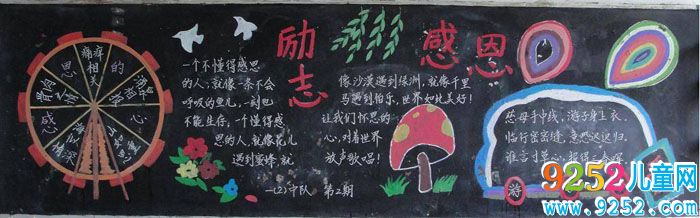 励志
感恩
思
痛痒
相关
的
骨肉
之情
感
心
一个不懂得感恩
的人，就像一条不会
呼吸的鱼儿，一刻也
不能生存；一个懂得感
恩的人，就像花儿
遇到蜜蜂，就
像沙漠遇到绿洲，就像千里
马遇到伯乐，世界如此美好！
让我们怀感恩的
心，对着世界
放声歌唱！
慈母手中线，游子身上衣。
临行密密缝，意恐迟迟归。
谁言寸草心，报得三春晖。
游
一(2)中队 第2期
9252儿童网
www.9252.com